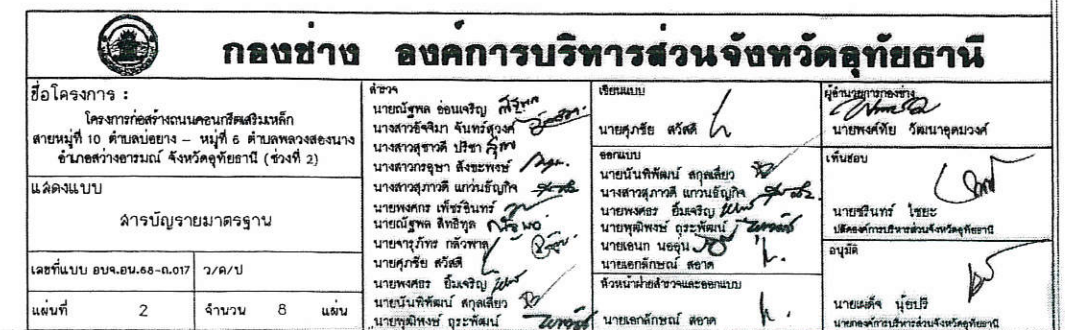 กองช่าง องค์การบริหารส่วนจังหวัดอุทัยธานี
ชื่อโครงการ :
โครงการก่อสร้างถนนคอนกรีตเสริมเหล็ก
สายหมู่ที่ 10 ตำบลบ่อยาง – หมู่ที่ 6 ตำบลพลวงสองนาง
อำเภอสว่างอารมณ์ จังหวัดอุทัยธานี (ช่วงที่ 2)
แสดงแบบ
สารบัญรายมาตรฐาน
เลขที่แบบ อบจ.อน.68-ถ.017 ว/ด/ป
แผ่นที่ 2 จำนวน 8 แผ่น
สำรวจ
นายณัฐพล อ่อนเจริญ
นางสาวอัจจิมา จันทร์สุวงค์
นางสาวสุชาวดี ปรีชา
นางสาวกรอุษา สังขะพงษ์
นางสาวสุภาวดี แกว่นธัญกิจ
นายพงศกร เพ็ชร์อินทร์
นายณัฐพล สิทธิทูล
นายจารุภัทร กลัวพาล
นายศุภชัย สวัสดี
นายพงศธร ยิ้มเจริญ
นายนันทิพัฒน์ สกุลเสี่ยว
นายพุฒิพงษ์ ถุระพัฒน์
เขียนแบบ
นายศุภชัย สวัสดี
ออกแบบ
นายนันทิพัฒน์ สกุลเสี่ยว
นางสาวสุภาวดี แกว่นธัญกิจ
นายพงศธร ยิ้มเจริญ
นายพุฒิพงษ์ ถุระพัฒน์
นายเอนก นออุ่น
นายเอกลักษณ์ สอาด
หัวหน้าฝ่ายสำรวจและออกแบบ
นายเอกลักษณ์ สอาด
ผู้อำนวยการกองช่าง
นายพงศ์ทัย วัฒนาอุดมวงค์
เห็นชอบ
นายชรินทร์ ไชยะ
ปลัดองค์การบริหารส่วนจังหวัดอุทัยธานี
อนุมัติ
นายเผด็จ นุ้ยปรี
นายกองค์การบริหารส่วนจังหวัดอุทัยธานี